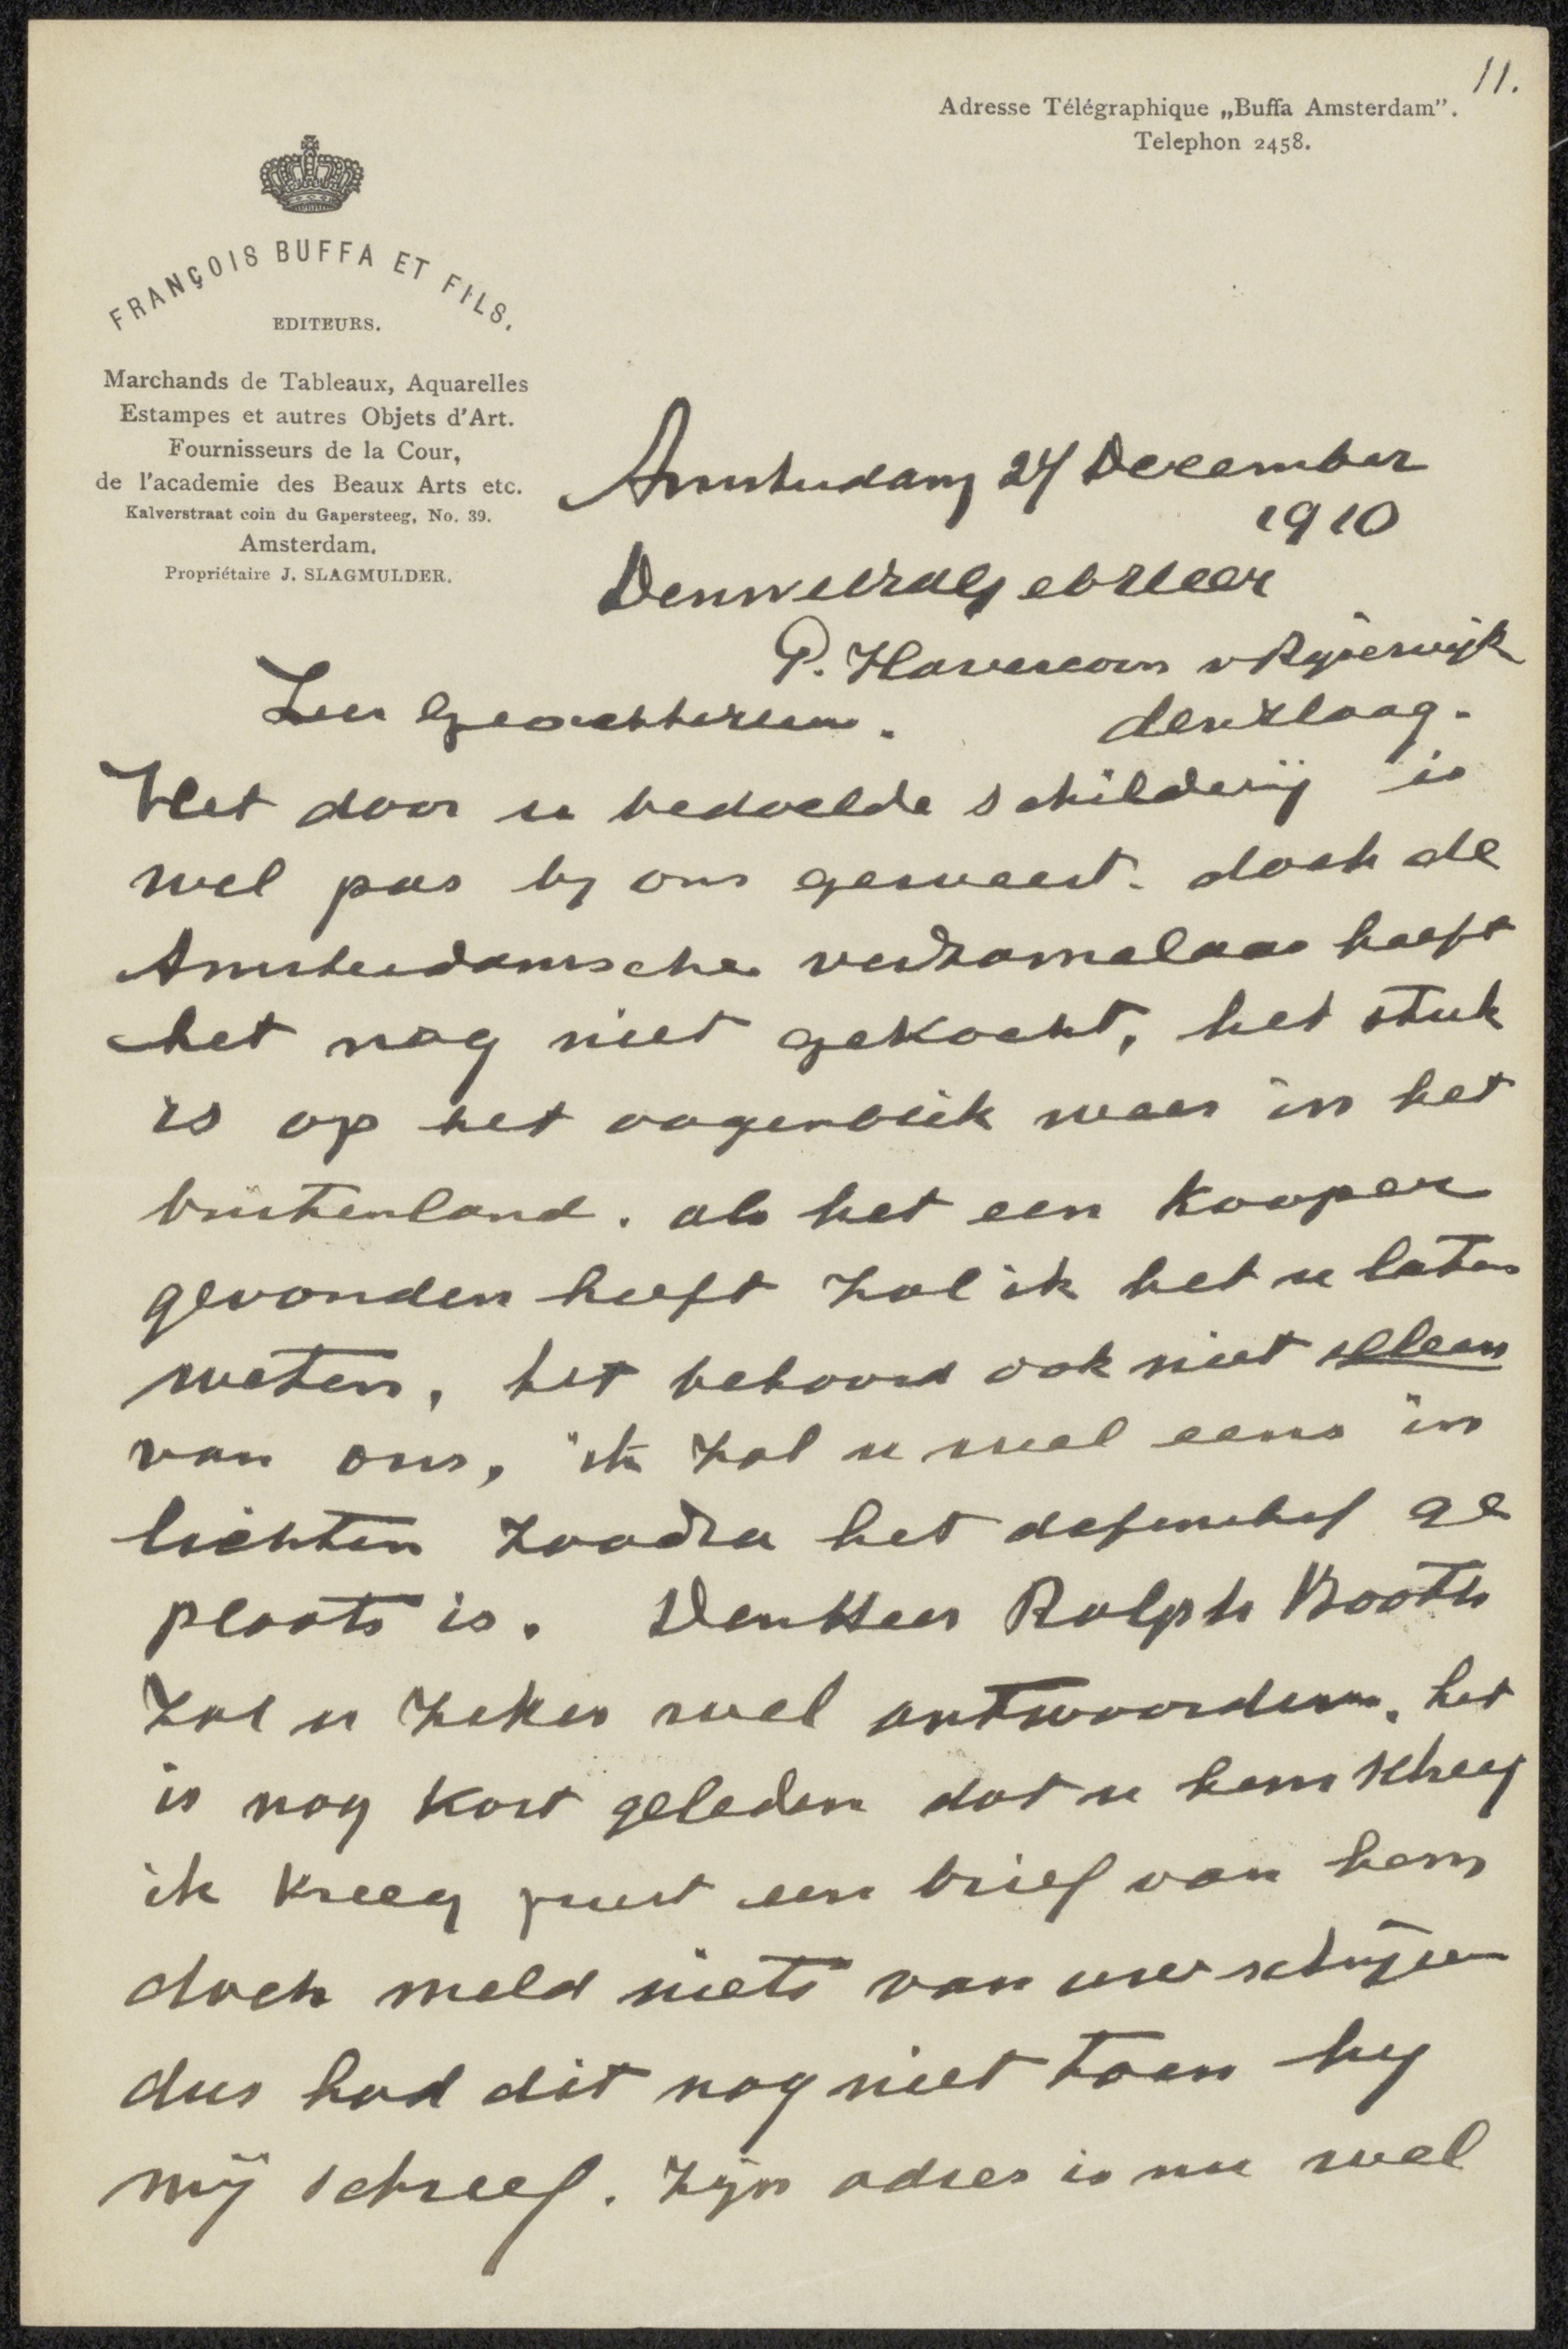 11.
Adresse Télégraphique „Buffa Amsterdam”.
Telephon 2458.
FRANÇOIS BUFFA ET FILS.
EDITEURS.
Marchands de Tableaux, Aquarelles
Estampes et autres Objets d'Art.
Fournisseurs de la Cour,
de l'academie des Beaux Arts etc.
Kalverstraat coin du Gapersteeg, No. 39.
Amsterdam.
Propriétaire J. SLAGMULDER.
Amsterdam 24 December
1910
Den weledelgeb Heer
P. Haverkorn v Rijsewijk
den Haag.
Zeer Geachte Heer.
Het door u bedoelde schilderij is
wel pas by ons geweest. doch de
Amsterdamsche verzamelaar heeft
het nog niet gekocht, het stuk
is op het oogenblik weer in het
buitenland. als het een kooper
gevonden heeft zal ik het u laten
weten, het behoord ook niet alleen
van ons, ik zal u wel eens in
lichten zoodra het definitief ge
plaats is. Den Heer Ralph Booth
zal u zeker wel antwoorden. het
is nog kort geleden dat u hem schreef
ik kreeg juist een brief van hem
doch meld niets van uw schrijven
dus had dit nog niet toen hy
mij schreef. zijn adres is nu wel